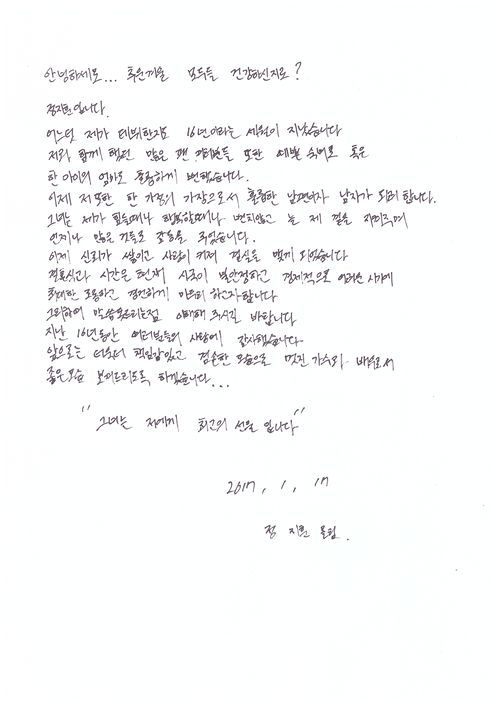 안녕하세요... 추운겨울 모두들 건강하신지요?
정지훈입니다.
어느덧 제가 데뷔한지도 16년이라는 세월이 지났습니다
저와 함께 했던 많은 팬 여러분들 또한 예쁜 숙녀로 혹은
한 아이의 엄마로 훌륭하게 변했습니다.
이제 저 또한 한 가정의 가장으로서 훌륭한 남편이자 남자가 되려 합니다.
그녀는 제가 힘들때나 행복할때나 변치않고 늘 제 곁을 지켜주며
언제나 많은 것들로 감동을 주었습니다.
이제 신뢰가 쌓이고 사랑이 커져 결실을 맺게 되었습니다
결혼식과 시간은 현재 시국이 불안정하고 경제적으로 어려운 시기에
최대한 조용하고 경건하게 마무리 하고자합니다
그리하여 말씀못드리는점 이해해 주시길 바랍니다.
지난 16년동안 여러분들의 사랑에 감사했습니다.
앞으로는 더욱더 책임감있고 겸손한 모습으로 멋진 가수와 배우로서
좋은모습 보여드리도록 하겠습니다...
"그녀는 저에게 최고의 선물 입니다"
2017. 1. 17
정 지훈 올림.